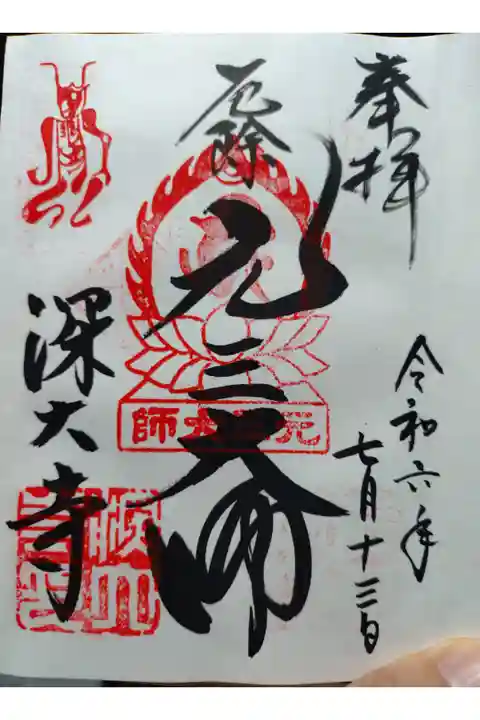 奉拝
令和六年
七月十三日
厄除
元三大師
元三大師
深大寺